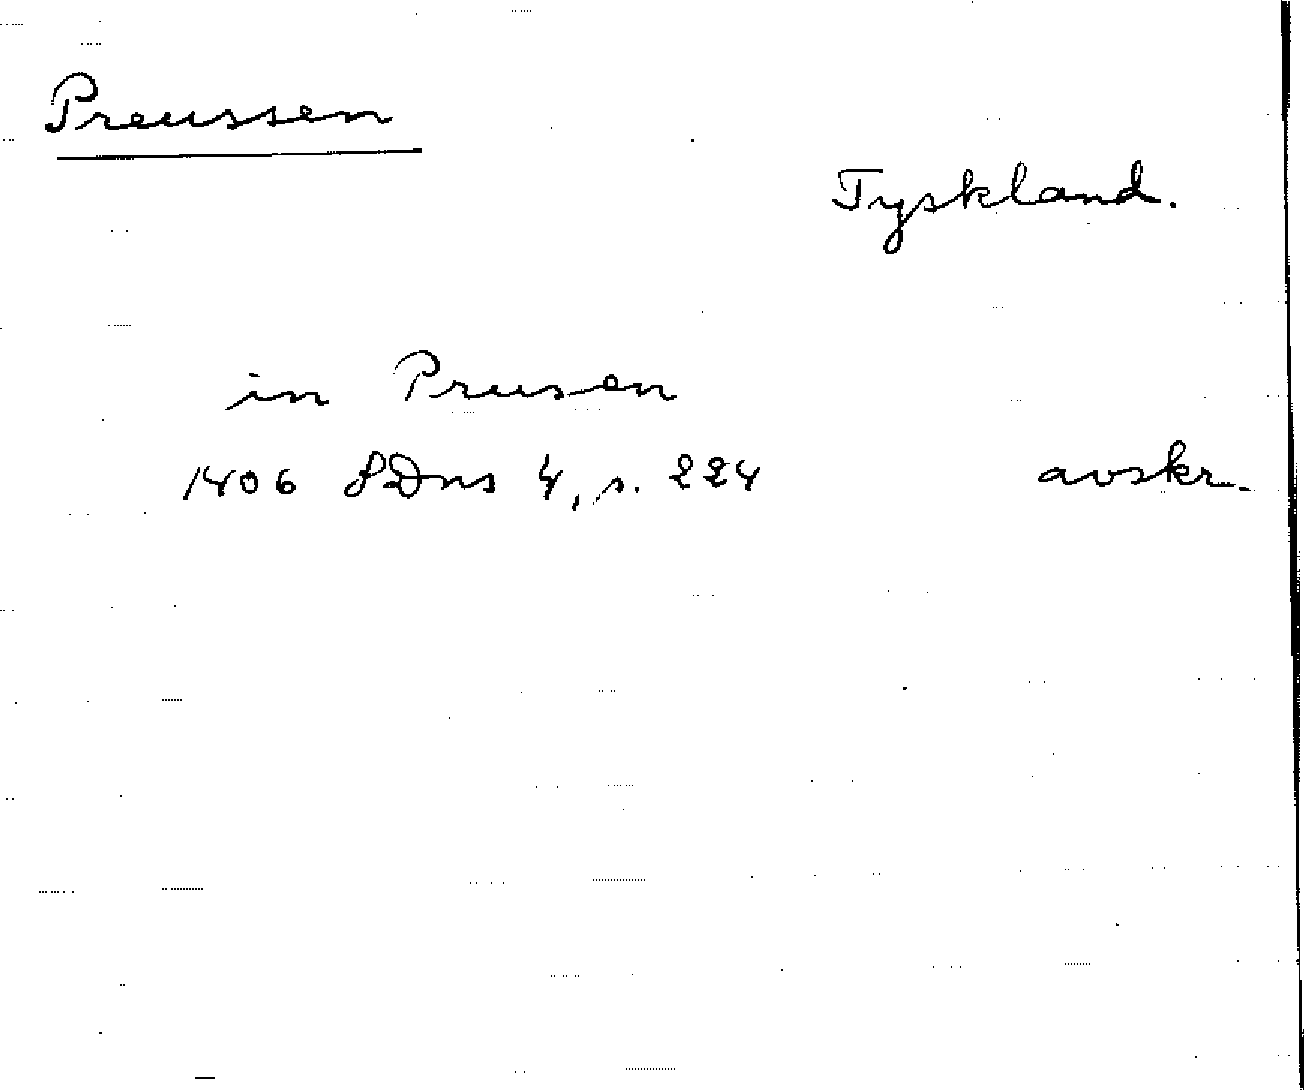 Preussen
Tyskland.
in Prusen
1406 SDns 4, s. 224 avskr.